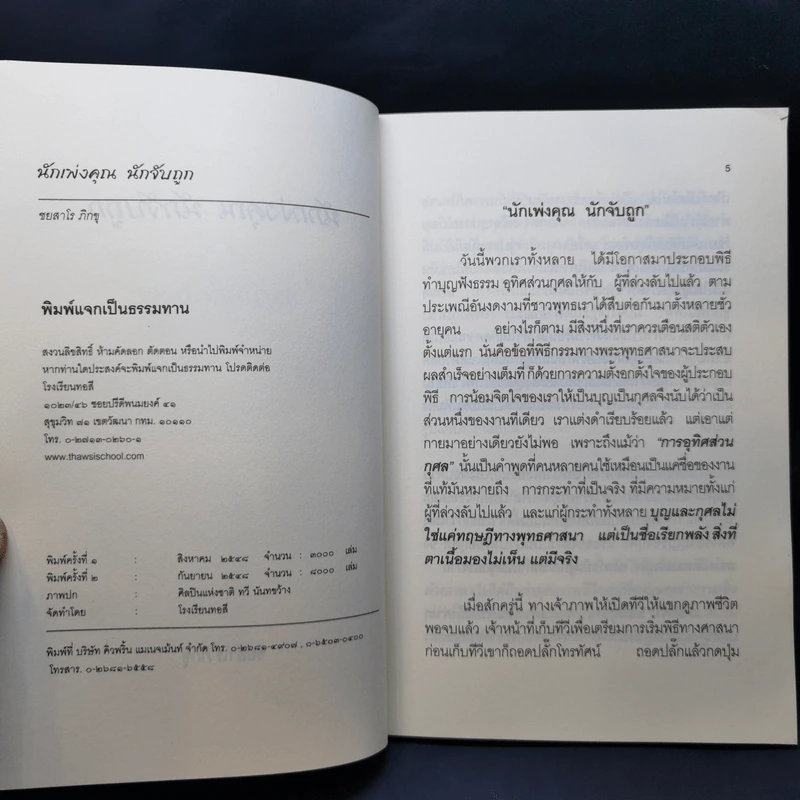 นักเพ่งคุณ นักจับถูก
ชยสาโร ภิกขุ
พิมพ์แจกเป็นธรรมทาน
สงวนลิขสิทธิ์ ห้ามคัดลอก ตัดตอน หรือนำไปพิมพ์จำหน่าย
หากท่านใดประสงค์จะพิมพ์แจกเป็นธรรมทาน โปรดติดต่อ
โรงเรียนทอสี
๑๐๒๓/๔๖ ซอยปรีดีพนมยงค์ ๔๑
สุขุมวิท ๗๑ เขตวัฒนา กทม. ๑๐๑๑๐
โทร. ๐-๒๗๑๓-๐๒๖๐-๑
www.thawsischool.com
พิมพ์ครั้งที่ ๑ : สิงหาคม ๒๕๔๘ จำนวน : ๓๐๐๐ เล่ม
พิมพ์ครั้งที่ ๒ : กันยายน ๒๕๔๘ จำนวน : ๘๐๐๐ เล่ม
ภาพปก : ศิลปินแห่งชาติ ทวี นันทขว้าง
จัดทำโดย : โรงเรียนทอสี
พิมพ์ที่ บริษัท คิวพริ้น แมเนจเม้นท์ จำกัด โทร. ๐-๒๖๘๑-๔๙๐๗ , ๐-๖๕๐๓-๐๔๐๐
โทรสาร. ๐-๒๖๘๑-๖๕๕๘
5
"นักเพ่งคุณ นักจับถูก"
วันนี้พวกเราทั้งหลาย ได้มีโอกาสมาประกอบพิธี
ทำบุญฟังธรรม อุทิศส่วนกุศลให้กับ ผู้ที่ล่วงลับไปแล้ว ตาม
ประเพณีอันงดงามที่ชาวพุทธเราได้สืบต่อกันมาตั้งหลายชั่ว
อายุคน อย่างไรก็ตาม มีสิ่งหนึ่งที่เราควรเตือนสติตัวเอง
ตั้งแต่แรก นั่นคือข้อที่พิธีกรรมทางพระพุทธศาสนาจะประสบ
ผลสำเร็จอย่างเต็มที่ ก็ด้วยการความตั้งอกตั้งใจของผู้ประกอบ
พิธี การน้อมจิตใจของเราให้เป็นบุญเป็นกุศลจึงนับได้ว่าเป็น
ส่วนหนึ่งของงานทีเดียว เราแต่งดำเรียบร้อยแล้ว แต่เอาแต่
กายมาอย่างเดียวยังไม่พอ เพราะถึงแม้ว่า "การอุทิศส่วน
กุศล" นั้นเป็นคำพูดที่คนหลายคนใช้เหมือนเป็นแค่ชื่อของงาน
ที่แท้มันหมายถึง การกระทำที่เป็นจริง ที่มีความหมายทั้งแก่
ผู้ที่ล่วงลับไปแล้ว และแก่ผู้กระทำทั้งหลาย บุญและกุศลไม่
ใช่แค่ทฤษฎีทางพุทธศาสนา แต่เป็นชื่อเรียกพลัง สิ่งที่
ตาเนื้อมองไม่เห็น แต่มีจริง
เมื่อสักครู่นี้ ทางเจ้าภาพให้เปิดทีวีให้แขกดูภาพชีวิต
พอจบแล้ว เจ้าหน้าที่เก็บทีวีเพื่อเตรียมการเริ่มพิธีทางศาสนา
ก่อนเก็บทีวีเขาก็ถอดปลั๊กโทรทัศน์ ถอดปลั๊กแล้วกดปุ่ม